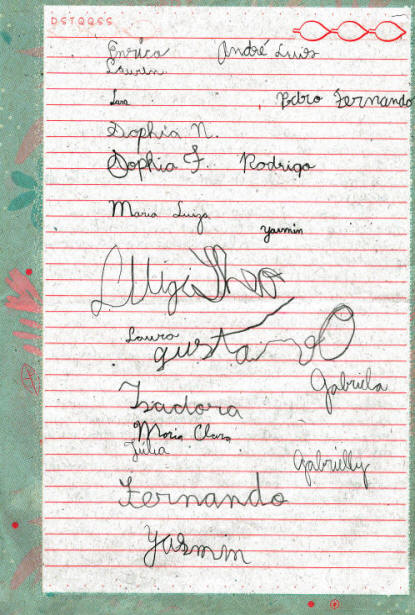 DSTQQSS
Enrico André Luis
Lauren
Lara Pedro Fernando
Sophia N.
Sophia F. Rodrigo
Maria Luiza
Yasmin
Luigi
Laura
Gustavo
Gabriela
Isadora
Maria Clara
Julia
Gabrielly
Fernando
Yasmin